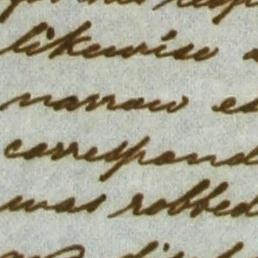 likewise a
narrow es
correspond
was robbed